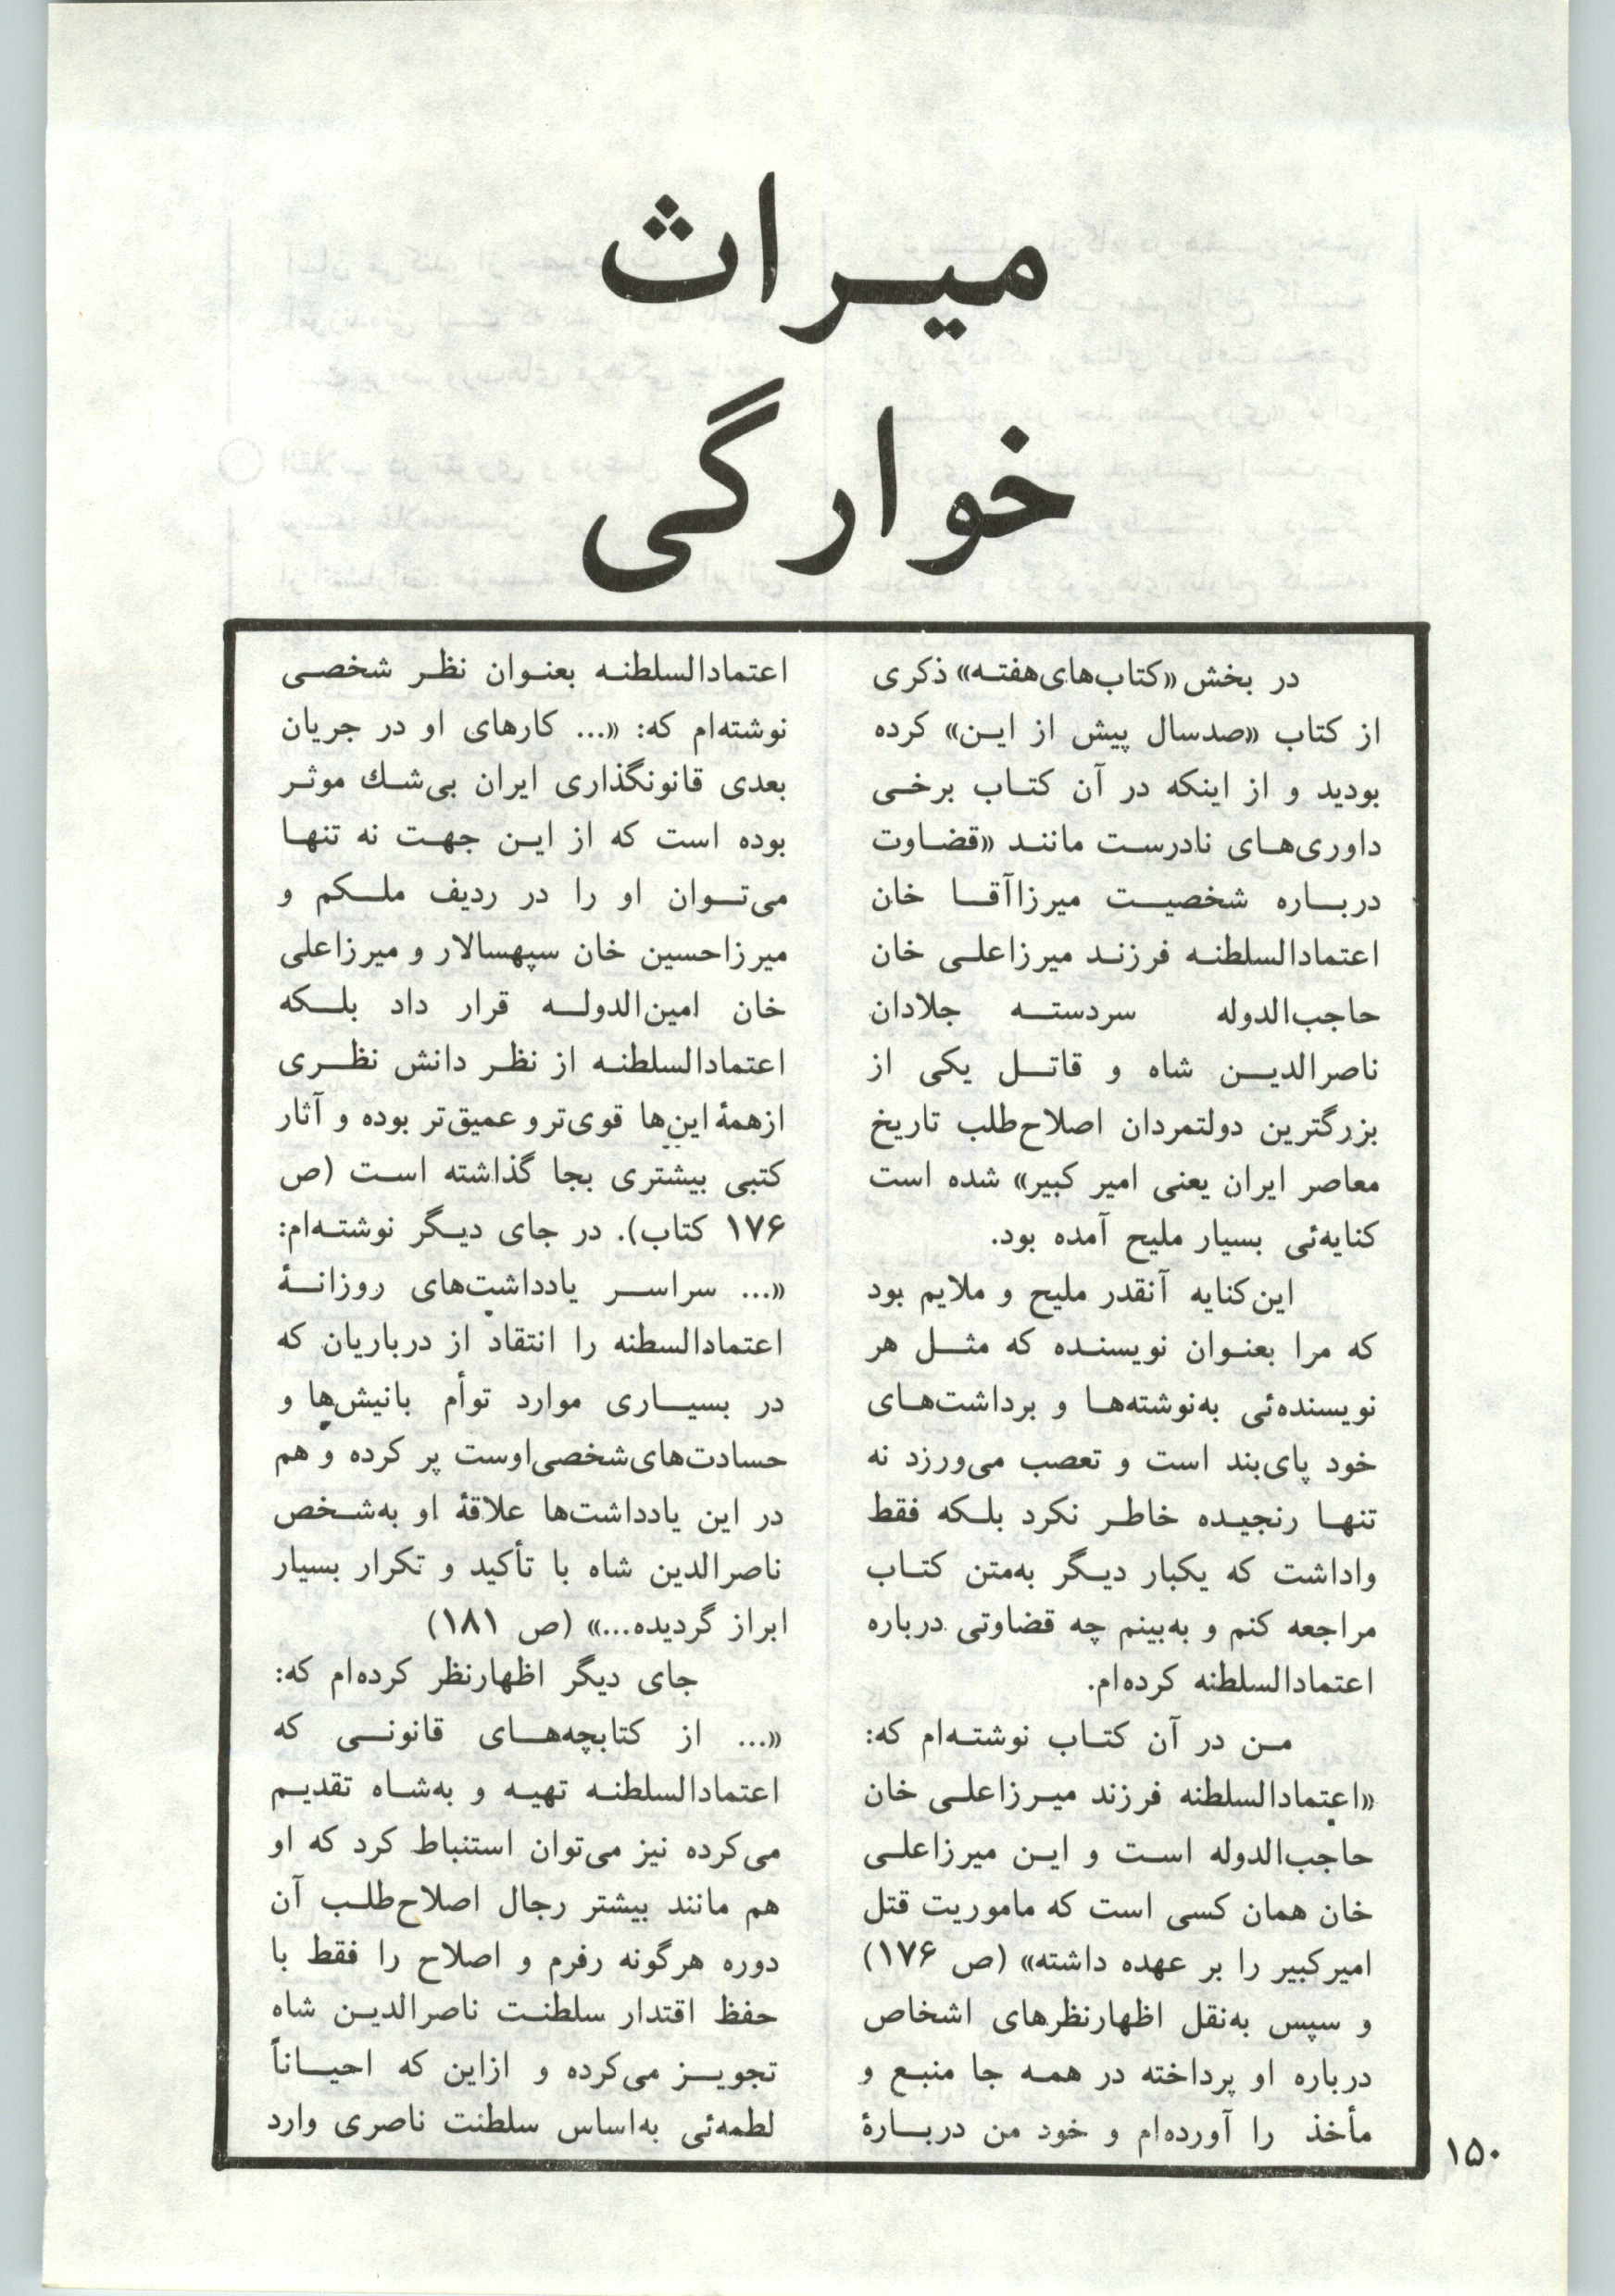 میراث
خوارگی
در بخش «کتاب‌های‌هفته» ذکری
از کتاب «صدسال پیش از این» کرده
بودید و از اینکه در آن کتاب برخی
داوری‌های نادرست مانند «قضاوت
درباره شخصیت میرزاآقا خان
اعتمادالسلطنه فرزند میرزاعلی خان
حاجب‌الدوله سردسته جلادان
ناصرالدین شاه و قاتل یکی از
بزرگترین دولتمردان اصلاح‌طلب تاریخ
معاصر ایران یعنی امیر کبیر» شده است
کنایه‌ئی بسیار ملیح آمده بود.
این‌کنایه آنقدر ملیح و ملایم بود
که مرا بعنوان نویسنده که مثل هر
نویسنده‌ئی به‌نوشته‌ها و برداشت‌های
خود پای‌بند است و تعصب می‌ورزد نه
تنها رنجیده خاطر نکرد بلکه فقط
واداشت که یکبار دیگر به‌متن کتاب
مراجعه کنم و به‌بینم چه قضاوتی درباره
اعتمادالسلطنه کرده‌ام.
من در آن کتاب نوشته‌ام که:
«اعتمادالسلطنه فرزند میرزاعلی خان
حاجب‌الدوله است و این میرزاعلی
خان همان کسی است که ماموریت قتل
امیرکبیر را بر عهده داشته» (ص ۱۷۶)
و سپس به‌نقل اظهارنظرهای اشخاص
درباره او پرداخته در همه جا منبع و
مأخذ را آورده‌ام و خود من دربارهٔ
اعتمادالسلطنه بعنوان نظر شخصی
نوشته‌ام که: «... کارهای او در جریان
بعدی قانونگذاری ایران بی‌شك موثر
بوده است که از این جهت نه تنها
می‌توان او را در ردیف ملکم و
میرزاحسین خان سپهسالار و میرزاعلی
خان امین‌الدوله قرار داد بلکه
اعتمادالسلطنه از نظر دانش نظری
ازهمهٔ این‌ها قوی‌ترو عمیق‌تر بوده و آثار
کتبی بیشتری بجا گذاشته است (ص
۱۷۶ کتاب). در جای دیگر نوشته‌ام:
«... سراسر یادداشت‌های روزانهٔ
اعتمادالسطنه را انتقاد از درباریان که
در بسیاری موارد توأم بانیش‌ها و
حسادت‌های‌شخصی‌اوست پر کرده و هم
در این یادداشت‌ها علاقهٔ او به‌شخص
ناصرالدین شاه با تأکید و تکرار بسیار
ابراز گردیده...» (ص ۱۸۱)
جای دیگر اظهارنظر کرده‌ام که:
«... از کتابچه‌های قانونی که
اعتمادالسلطنه تهیه و به‌شاه تقدیم
می‌کرده نیز می‌توان استنباط کرد که او
هم مانند بیشتر رجال اصلاح‌طلب آن
دوره هرگونه رفرم و اصلاح را فقط با
حفظ اقتدار سلطنت ناصرالدین شاه
تجویز می‌کرده و ازاین که احیاناً
لطمه‌ئی به‌اساس سلطنت ناصری وارد
۱۵۰